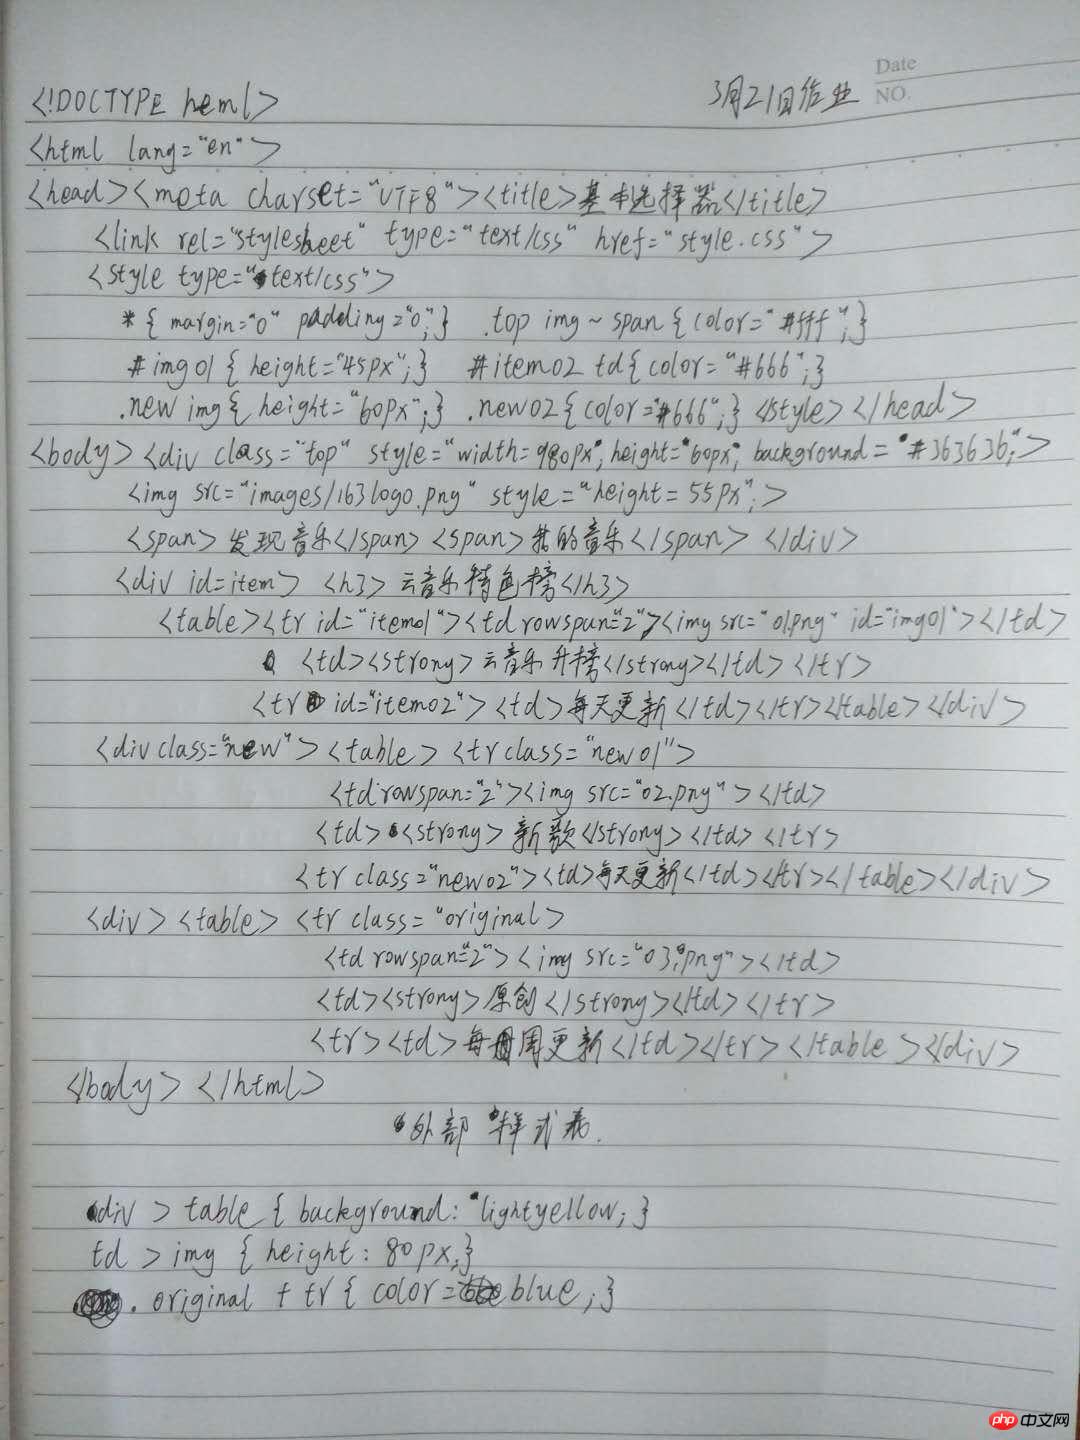 Date
3月21日作业
NO.
<!DOCTYPE heml>
<html lang="en">
<head><meta charset="UTF8"><title>基本选择器</title>
<link rel="stylesheet" type="text/css" href="style.css">
<style type="text/css">
*{ margin="0" padding="0";} .top img ~ span{color="#fff";}
#img01{height="45px";} #item02 td{color="#666";}
.new img{height="60px";} .new02{color="#666";}</style></head>
<body><div class="top" style="width=980px";height="60px";background="#363636;">
<img src="images/163logo.png" style="height=55px";>
<span>发现音乐</span><span>我的音乐</span></div>
<div id=item> <h3>云音乐特色榜</h3>
<table><tr id="item01"><td rowspan="2";><img src="01.png" id="img01"></td>
<td><strong>云音乐升榜</strong></td></tr>
<tr id="item02"><td>每天更新</td></tr></table></div>
<div class="new"><table><tr class="new01">
<td rowspan="2"><img src="02.png"></td>
<td><strong>新歌</strong></td></tr>
<tr class="new02"><td>每天更新</td></tr></table></div>
<div><table><tr class="original>
<td rowspan="2"><img src="03.png"></td>
<td><strong>原创</strong></td></tr>
<tr><td>每周更新</td></tr></table></div>
</body></html>
外部样式表.
div > table{ background: "lightyellow;}
td > img {height: 80px;}
.original + tr{ color=blue;}
php 中文网